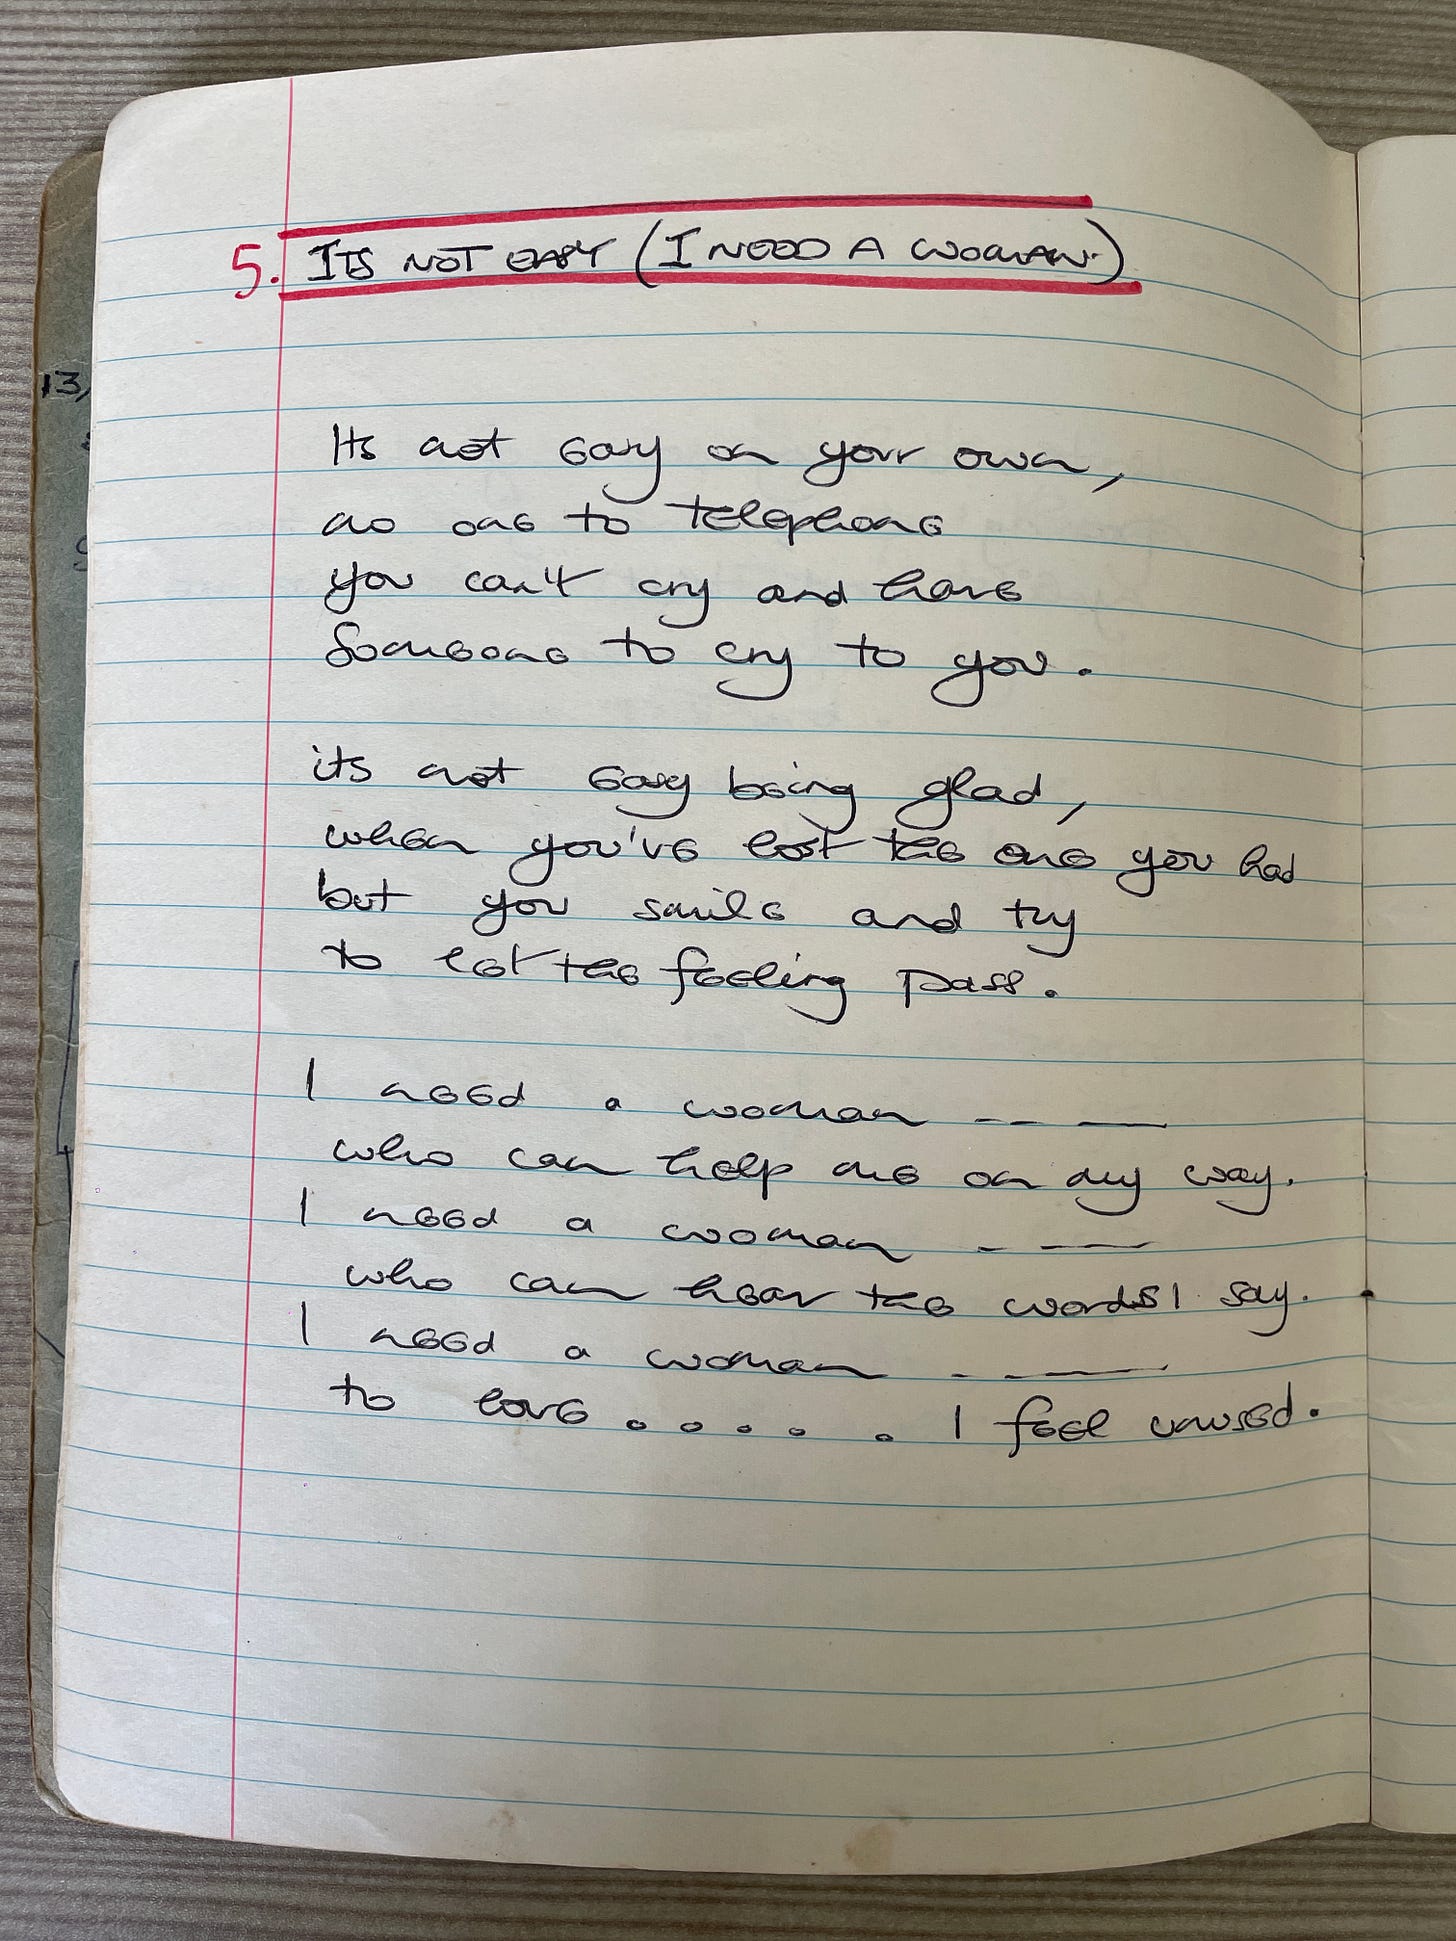 5. ITS NOT EASY (I NEED A WOMAN.)
13,
Its not easy on your own,
no one to telephone
you can't cry and have
Someone to cry to you.
its not easy being glad,
when you've lost the one you had
but you smile and try
to let the feeling pass.
I need a woman -- —
who can help me on my way.
I need a woman - —
who can hear the words I say.
I need a woman - —
to love . . . . . I feel unused.